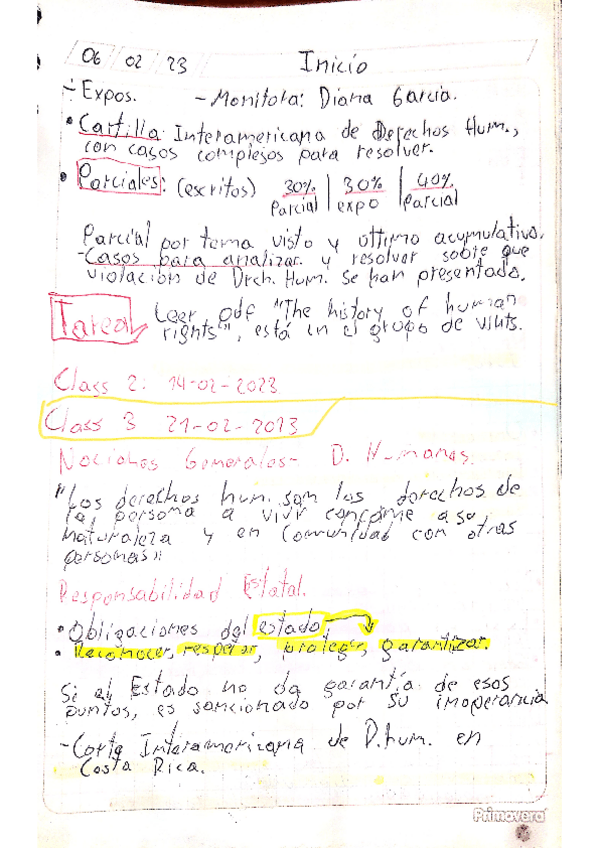 06 / 02 / 23 Inicio
- Expos. - Monitora: Diana Garcia.
• Cartilla Interamericana de Derechos Hum.,
con casos complejos para resolver.
• Parciales: (escritos) 30% | 30% | 40%
Parcial | expo | Parcial
Parcial por tema visto y último acumulativo.
- Casos para analizar y resolver sobre que
violación de Drch. Hum. se han presentado.
Tarea Leer pdf "The history of human
rights", está en el grupo de
Class 2: 14-02-2023
Class 3 21-02-2023
Nociones Generales - D. Humanos.
"Los derechos hum. son los derechos de
la persona a vivir concorme a su
naturaleza y en comunidad con otras
personas"
Responsabilidad Estatal.
• Obligaciones del estado
• Reconocer, respetar, proteger, garantizar.
Si el Estado no da garantía de esos
puntos, es sancionado por su inoperancia
- Corte Interamericana de D.hum. en
Costa Rica.
Primavera